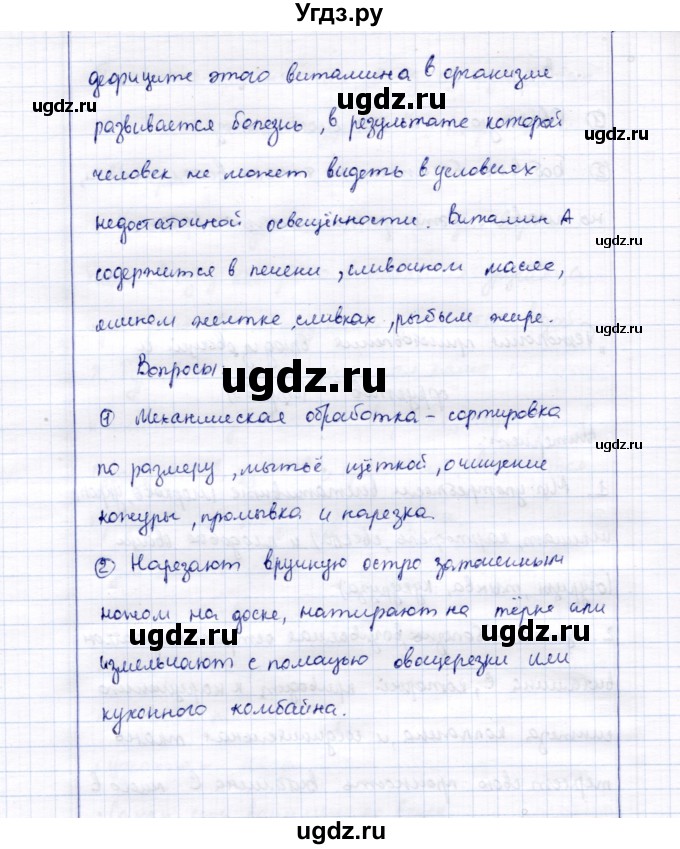 Угдз.ру
дефиците этого витамина в организме
ugdz.ru
ugdz.ru
ugdz.ru
развивается болезнь, в результате которой
человек не может видеть в условиях
недостаточной освещённости. Витамин А
ugdz.ru
содержится в печени, сливочном масле,
яичном желтке, сливках, рыбьем жире.
ugdz.ru
Вопросы
ugdz.ru
① Механическая обработка – сортировка
по размеру, мытьё щёткой, очищение
ugdz.ru
кожуры, промывка и нарезка.
② Нарезают вручную остро заточенным
ножом на доске, натирают на тёрке или
ugdz.ru
ugdz.ru
измельчают с помощью овощерезки или
кухонного комбайна.
ugdz.ru
ugdz.ru
ugdz.ru